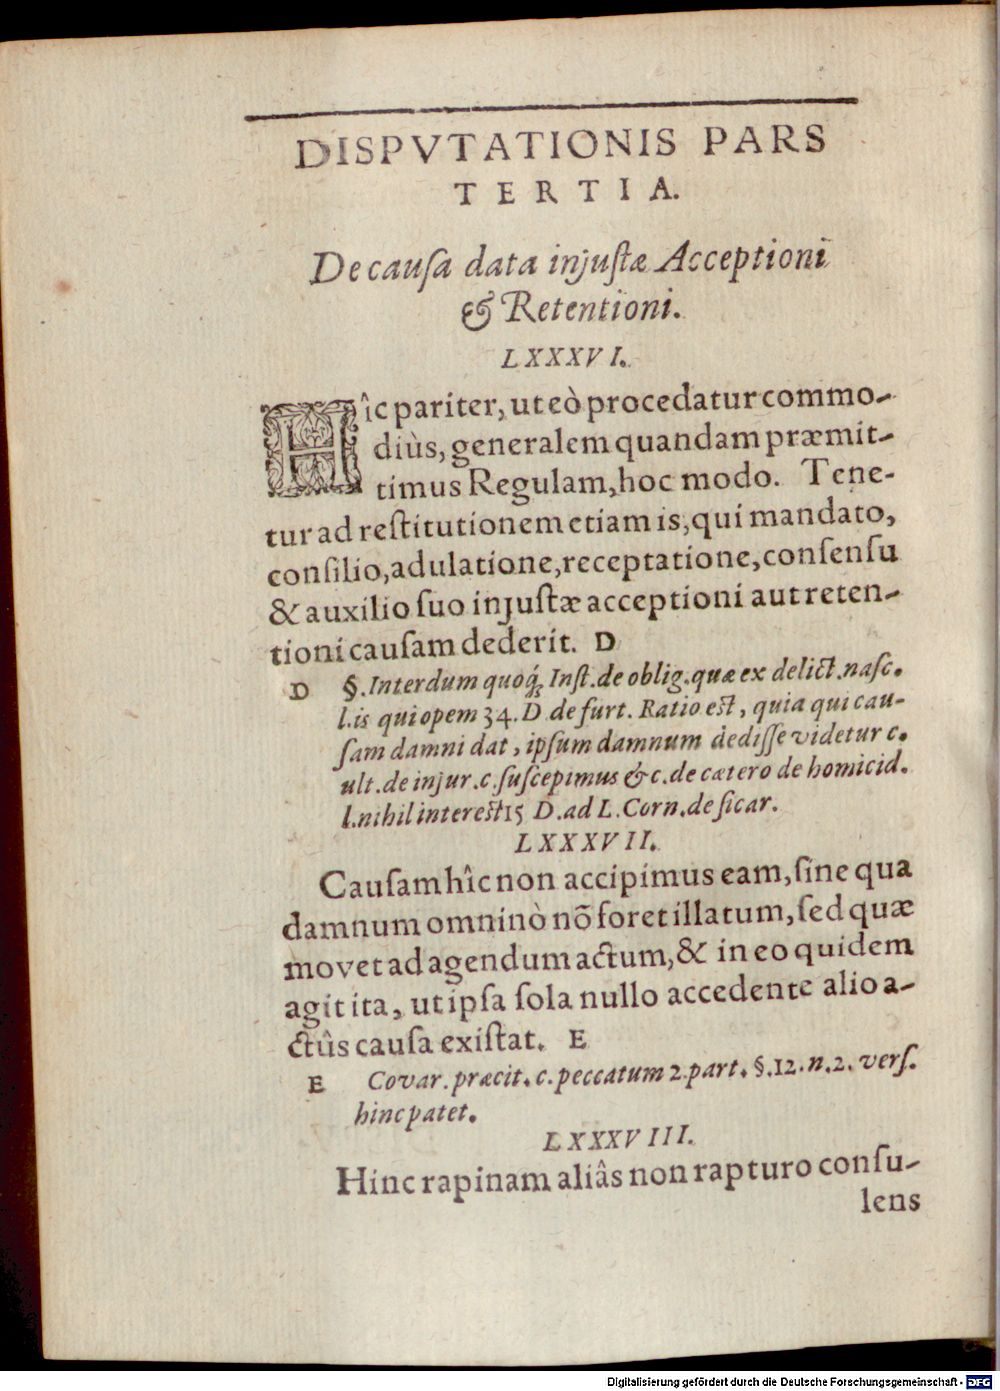 DISPVTATIONIS PARS
TERTIA.
De causa data injustæ Acceptioni
& Retentioni.
LXXXVI.
Hîc pariter, ut eò procedatur commo-
diùs, generalem quandam præmit-
timus Regulam, hoc modo. Tene-
tur ad restitutionem etiam is, qui mandato,
consilio, adulatione, receptatione, consensu
& auxilio suo injustæ acceptioni aut reten-
tioni causam dederit. D
D §. Interdum quoq́; Inst. de oblig. quæ ex delict. nasc.
l. is qui opem 34. D de furt. Ratio est, quia qui cau-
sam damni dat, ipsum damnum dedisse videtur c.
ult. de injur. c. suscepimus & c. de cætero de homicid.
l. nihil interest 15 D. ad L. Corn. de sicar.
LXXXVII.
Causam hîc non accipimus eam, sine qua
damnum omninò nõ foret illatum, sed quæ
movet ad agendum actum, & in eo quidem
agit ita, ut ipsa sola nullo accedente alio a-
ctûs causa existat. E
E Covar. præcit. c. peccatum 2. part. §. 12. n. 2. vers.
hinc patet.
LXXXVIII.
Hinc rapinam aliâs non rapturo consu-
lens
Digitalisierung gefördert durch die Deutsche Forschungsgemeinschaft - DFG